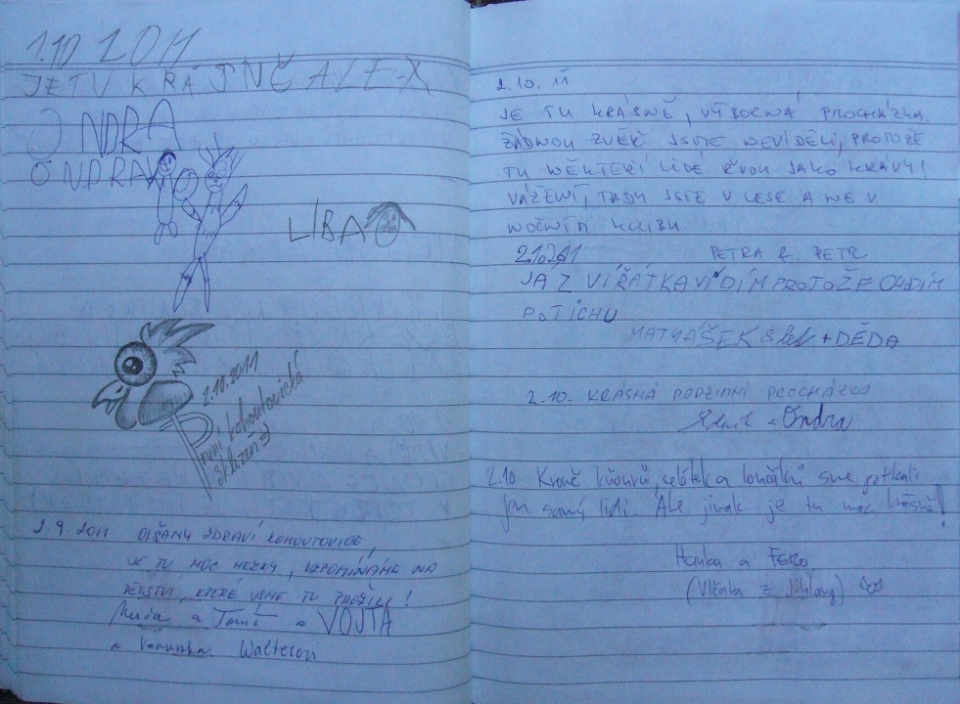 1.10 2011
JE TU KRÁSNĚ ALEX
ONDRA
ONDRA
LÍBA
2.10.2011
První kohoutovická
sklizeň
2.9 2011 OLŠANY ZDRAVÍ KOHOUTOVICE,
JE TU MOC HEZKY, VZPOMÍNÁME NA
DĚTSTVÍ, KTERÉ JSME TU PROŽILI!
a Tomáš a VOJTA
a Verunka
2.10.11
JE TU KRÁSNĚ, VÝBORNÁ PROCHÁZKA.
ŽÁDNOU ZVĚŘ JSME NEVIDĚLI, PROTOŽE
TU NĚKTEŘÍ LIDÉ ŘVOU JAKO KRÁVY!
VÁŽENÍ, TADY JSTE V LESE A NE V
NOČNÍM KLUBU.
2.10.2011 PETRA & PETR
JÁ ZVÍŘÁTKA VIDÍM PROTOŽE CHODÍM
POTICHU
MATYÁŠEK 8 let + DĚDA
2.10. KRÁSNÁ RODINNÁ PROCHÁZKA
a Ondra
2.10 Kromě kňourů, selátek a lončáků sme potkali
jen samý lidi. Ale jinak je tu moc krásně!
Hanka a
(Vlčata z Jihlavy)